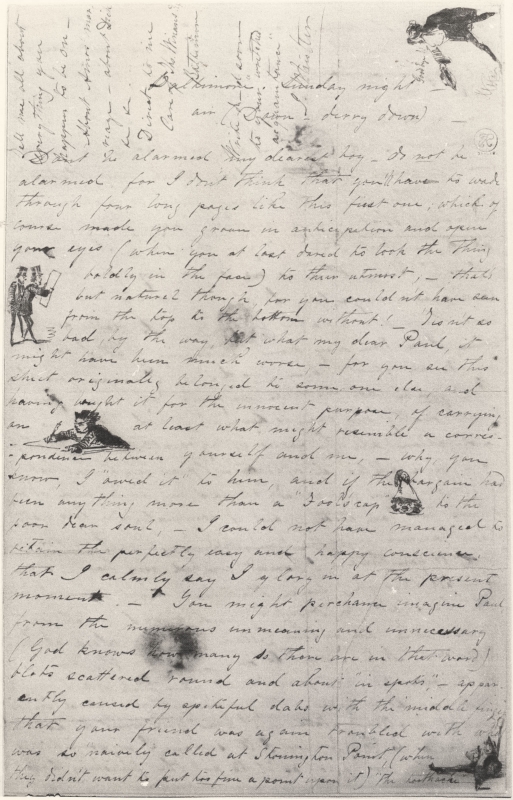 Tell me all about
Everything you
happen to be on -
About
to
Direct to me
Care
Baltimore
Whistler
Baltimore Sunday night
air Down - derry down -
Don't be alarmed my dearest boy - do not be
alarmed, for I don't think that you'll have to wade
through four long pages like this first one; which of
course made you groan in anticipation and open
your eyes (when you at last dared to look the thing
boldly in the face) to their utmost, - that's
but natural though, for you couldn't have seen
from the top to the bottom without! - 'Tis n't so
bad, by the way, but what my dear Paul, it
might have been much worse - for you see this
sheet originally belonged to some one else and
having bought it for the innocent purpose, of carrying
on at least what might resemble a corres-
-pondence between yourself and me, - why you
know, I "owed it" to him, and if the bargain had
been anything more than a "Foolscap" to the
poor dear soul - I could not have managed to
retain the perfectly easy and happy conscience
that I calmly say I glory in at the present
moment. - You might perchance imagine Paul
from the numerous unmeaning and unnecessary
(God knows how many ss there are in that word)
blots scattered round and about "in spots" - appar-
ently caused by spiteful dabs with the middle finger
that your friend was again troubled with
was so naively called at Stonington Point (when
they didn't want to put too fine a point upon it) "the